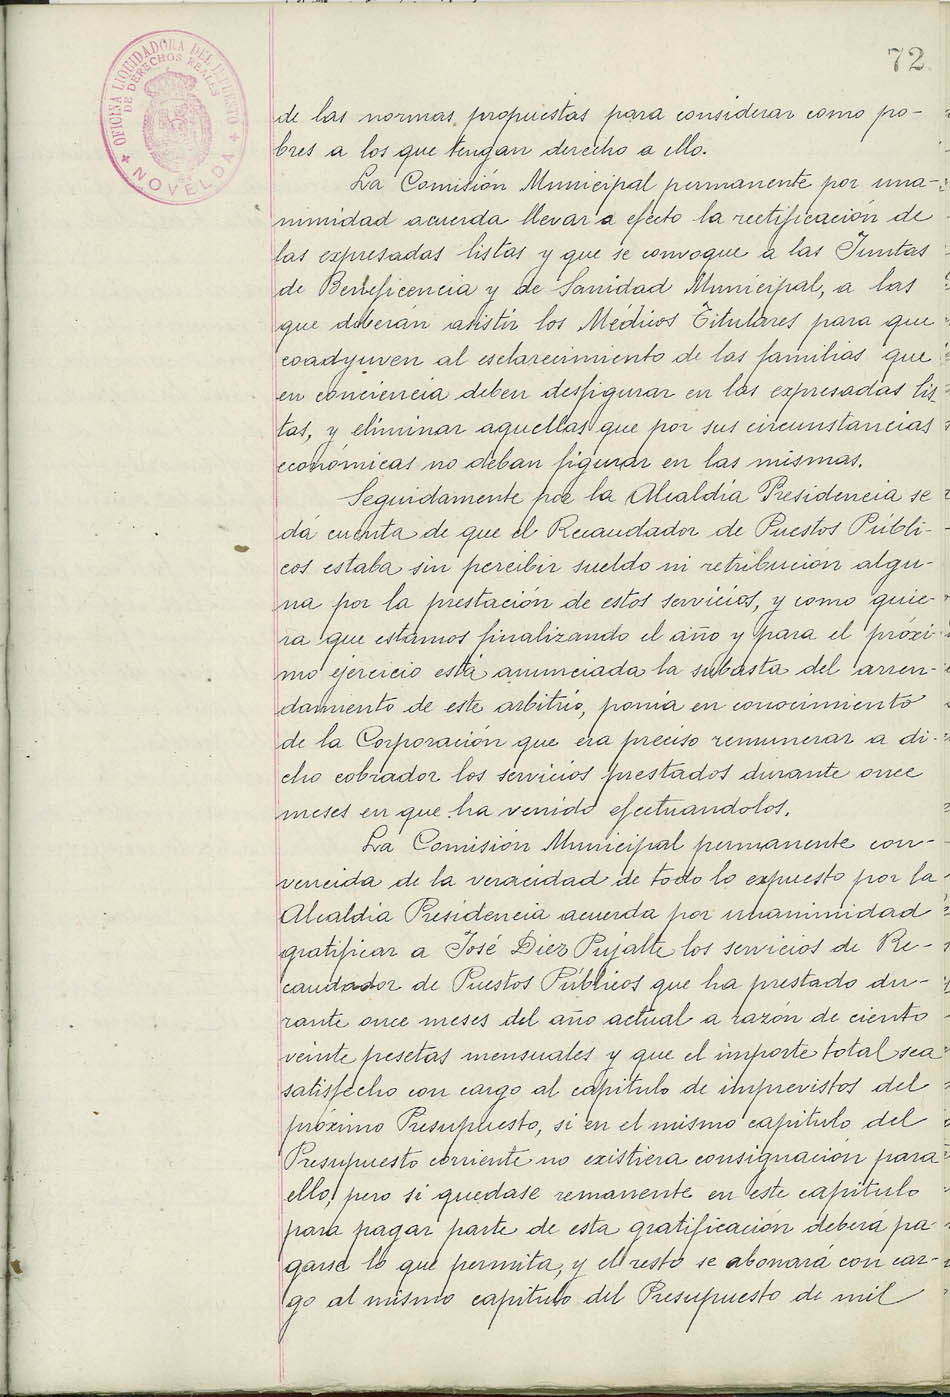 OFICINA LIQUIDADORA DEL IMPUESTO
DE DERECHOS REALES
NOVELDA
72
de las normas propuestas para considerar como po-
bres a los que tengan derecho a ello.
La Comisión Municipal permanente por una-
nimidad acuerda llevar a efecto la rectificación de
las expresadas listas y que se convoque a las Juntas
de Beneficencia y de Sanidad Municipal, a las
que deberán asistir los Médicos Titulares para que
coadyuven al esclarecimiento de las familias que
en conciencia deben desfigurar en las expresadas lis-
tas, y eliminar aquellas que por sus circunstancias
económicas no deban figurar en las mismas.
Seguidamente por la Alcaldía Presidencia se
dá cuenta de que el Recaudador de Puestos Públi-
cos estaba sin percibir sueldo ni retribución algu-
na por la prestación de estos servicios, y como quie-
ra que estamos finalizando el año y para el próxi-
mo ejercicio está anunciada la subasta del arren-
damiento de este arbitrio, ponía en conocimiento
de la Corporación que era preciso remunerar a di-
cho cobrador los servicios prestados durante once
meses en que ha venido efectuandolos.
La Comisión Municipal permanente con-
vencida de la veracidad de todo lo expuesto por la
Alcaldia Presidencia acuerda por unanimidad
gratificar a José Diez Pujalte los servicios de Re-
caudador de Puestos Públicos que ha prestado du-
rante once meses del año actual a razón de ciento
veinte pesetas mensuales y que el importe total sea
satisfecho con cargo al capitulo de imprevistos del
próximo Presupuesto, si en el mismo capitulo del
Presupuesto corriente no existiera consignación para
ello, pero si quedase remanente en este capitulo
para pagar parte de esta gratificación deberá pa-
garse lo que permita, y el resto se abonará con car-
go al mismo capitulo del Presupuesto de mil